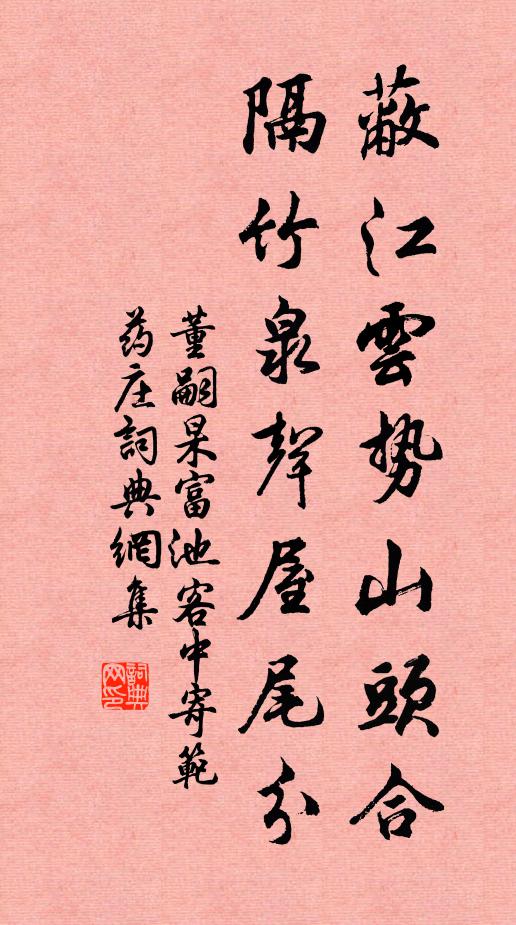 蔽江雲势山頭合
隔竹泉聲屋尾分
董嗣杲富池客中寄範
药庄詞典網集
詞典网印